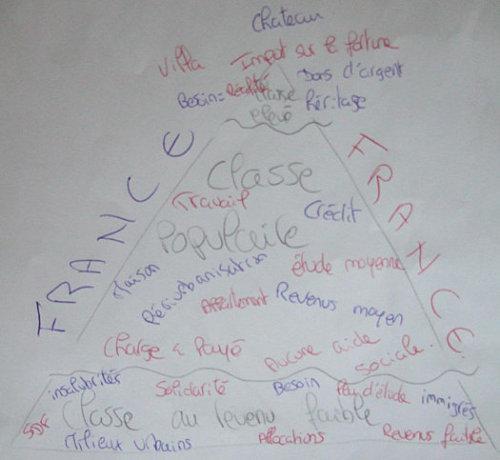 Chateau
Villa Impot sur la fortune
Besoin = réalité Dons d'argent
Classe élevé héritage
FRANCE
FRANCE
Classe
Travail Crédit
Populaire
Maison Périurbanisation étude moyenne
Appartement Revenus moyen
Charge à payé Aucune aide sociale.
insalubrités Solidarité Besoin Peu d'étude immigrés
SDF Classe au revenu faible
Milieux urbains Allocations Revenus faible